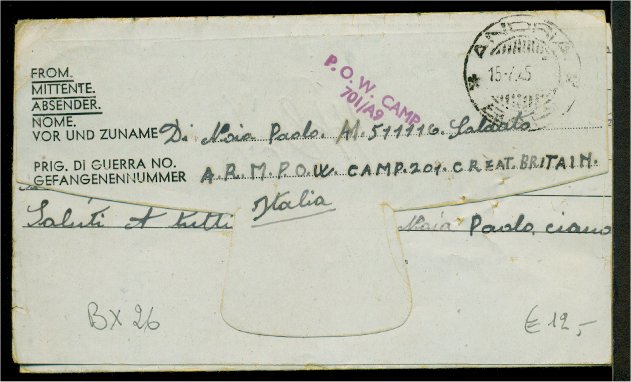 ANDRIA
15-7-45
P.O.W. CAMP.
701/A9
FROM.
MITTENTE.
ABSENDER.
NOME.
VOR UND ZUNAME Di Noia Paolo. M. 511116. Soldato
PRIG. DI GUERRA NO.
GEFANGENENNUMMER A.R.M.P.O.W. CAMP.201. CREAT. BRITAIN.
Italia
Saluti A tutti Noia Paolo, ciano
BX 26
€ 12,-